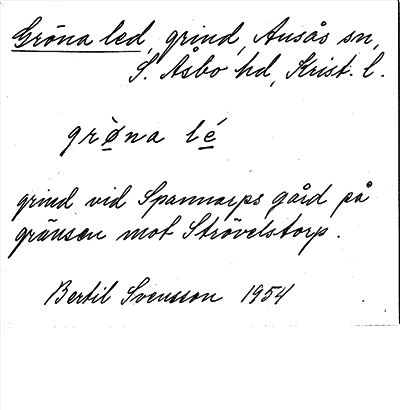 Gröna led, grind, Ausås sn,
S. Åsbo hd, Krist. l.
grø̀na lé
grind vid Spannarps gård på
gränsen mot Strövelstorp.
Bertil Svensson 1954